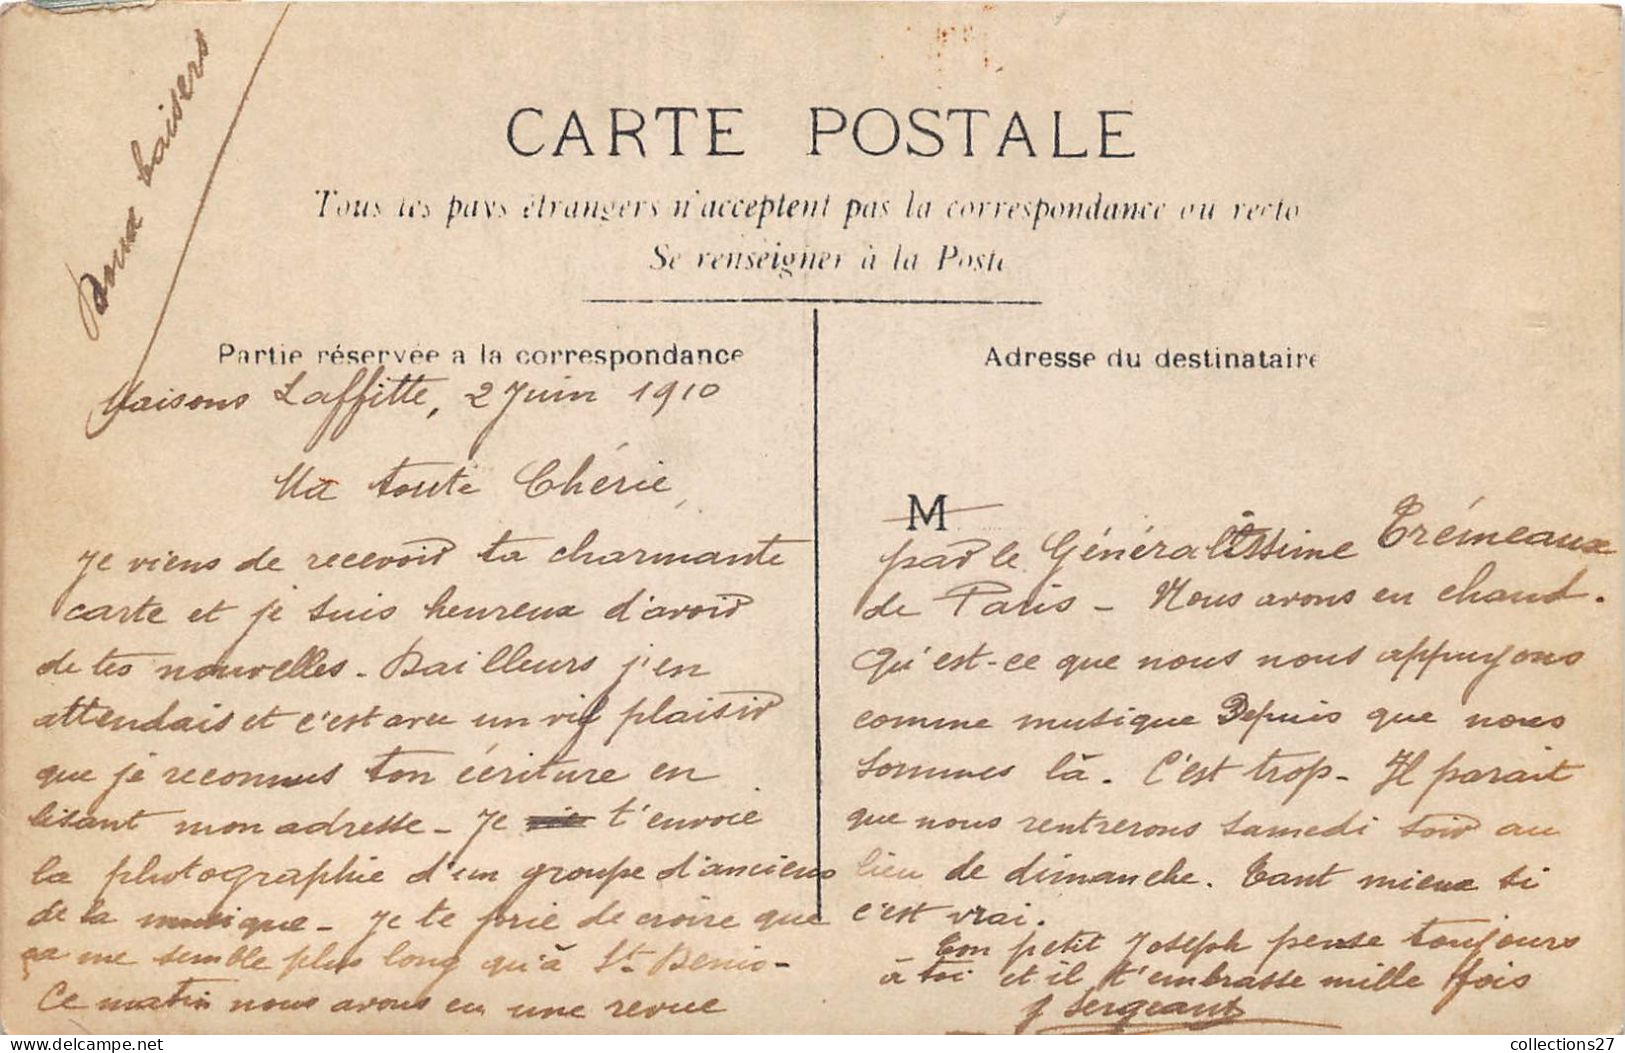 Doux baisers
CARTE POSTALE
Tous les pays étrangers n'acceptent pas la correspondance au recto
Se renseigner à la Poste
Partie réservée a la correspondance
Maisons Laffitte, 2 Juin 1910
Ma toute Chérie,
Je viens de recevoir ta charmante
carte et je suis heureux d'avoir
de tes nouvelles - Dailleurs j'en
attendais et c'est avec un vif plaisir
que je reconnus ton écriture en
lisant mon adresse - Je t'envoie
la photographie d'un groupe d'anciens
de la musique - Je te prie de croire que
ça me semble plus long qu'à St Denis -
Ce matin nous avons eu une revue
Adresse du destinataire
M
par le Généralissime Trémeaux
de Paris - Nous avons eu chaud.
Qu'est-ce que nous nous appuyons
comme musique Depuis que nous
sommes là. C'est trop - Il parait
que nous rentrerons samedi soir au
lieu de dimanche. Tant mieux si
c'est vrai.
Ton petit Joseph pense toujours
à toi et il t'embrasse mille fois
J Sergeant
collections27